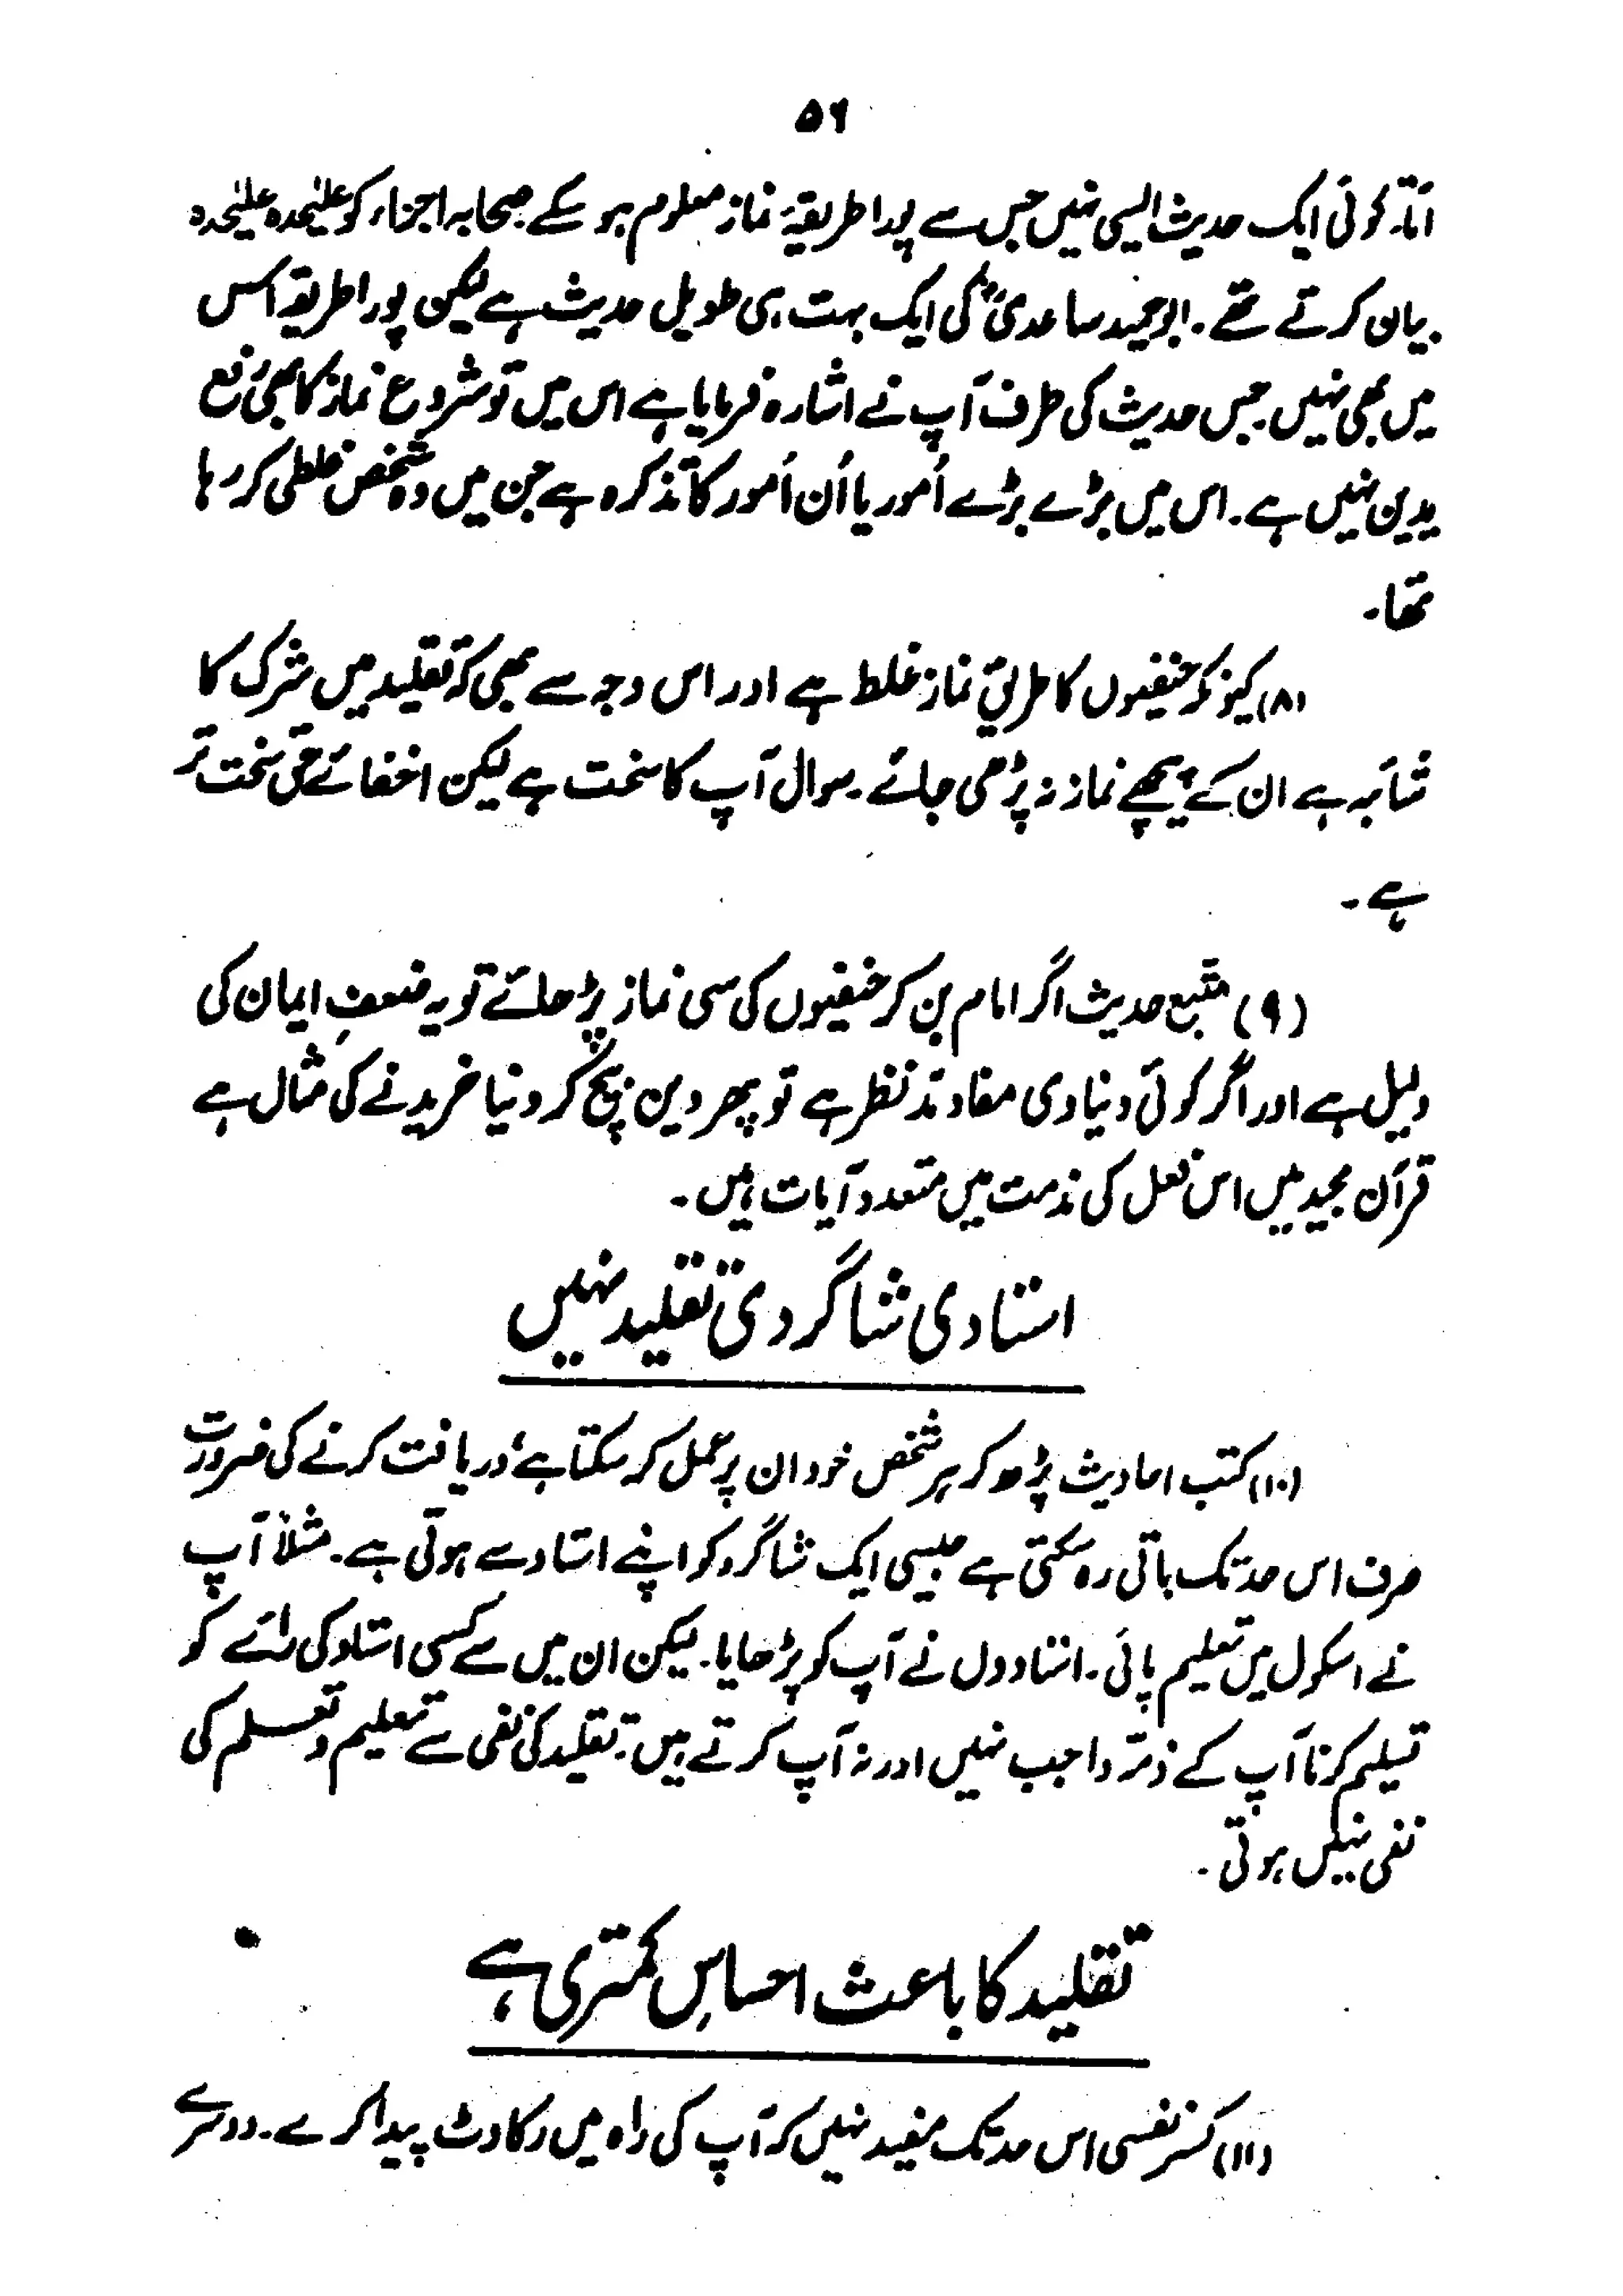 ۵۶
آتا۔ کوئی ایک حدیث ایسی نہیں جس سے پورا طریقۂ نماز معلوم ہو سکے۔ صحابہ اجزاء کو علیٰحدہ علیٰحدہ
بیان کرتے تھے۔ ابوحمید ساعدیؓ کی ایک بہت ہی طویل حدیث ہے لیکن پورا طریقہ اس
میں بھی نہیں۔ جس حدیث کی طرف آپ نے اشارہ فرمایا ہے اس میں تو شروع نماز کا بھی رفع
یدین نہیں ہے۔ اس میں بڑے بڑے اُمور یا اُن اُمور کا تذکرہ ہے جن میں وہ شخص غلطی کر رہا
تھا۔
(۸) کیونکہ حنفیوں کا طریق نماز غلط ہے اور اس وجہ سے بھی کہ تقلید میں شرک کا
شائبہ ہے ان کے پیچھے نماز نہ پڑھی جائے۔ سوال آپ کا سخت ہے لیکن اخفائے حق سخت تر
ہے۔
(۹) متبع حدیث اگر امام بن کر حنفیوں کی سی نماز پڑھائے تو یہ ضعفِ ایمان کی
دلیل ہے اور اگر کوئی دنیاوی مفاد مدِّنظر ہے تو پھر دین بیچ کر دنیا خریدنے کی مثال ہے
قرآن مجید میں اس فعل کی مذمت میں متعدد آیات ہیں۔
استادی شاگردی تقلید نہیں
(۱۰) کتب احادیث پڑھ کر ہر شخص خود ان پر عمل کر سکتا ہے، دریافت کرنے کی ضرورت
صرف اس حد تک باقی رہ سکتی ہے جیسی ایک شاگرد کو اپنے استاد سے ہوتی ہے۔ مثلاً آپ
نے اسکول میں تعلیم پائی۔ استادوں نے آپ کو پڑھایا۔ لیکن ان میں سے کسی استاد کی رائے کو
تسلیم کرنا آپ کے ذمّہ واجب نہیں اور نہ آپ کرتے ہیں۔ تقلید کی نفی سے تعلیم و تعلم کی
نفی نہیں ہوتی۔
تقلید کا باعث احساسِ کمتری ہے
(۱۱) کسر نفسی اس حد تک مفید نہیں کہ آپ کی راہ میں رکاوٹ پیدا کرے۔ دوسرے